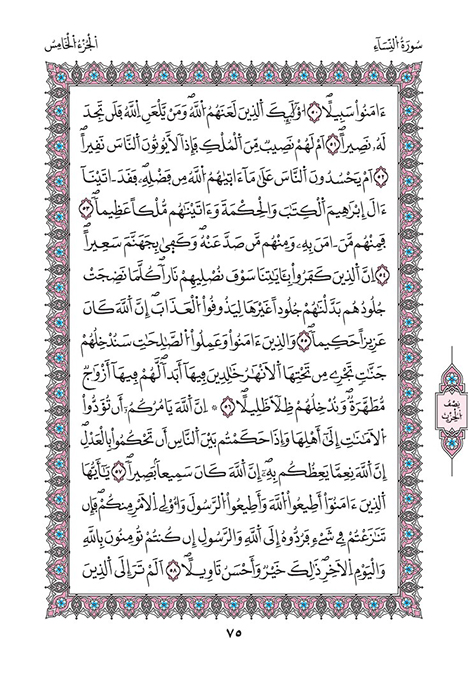 سُورَةُ النِّسَاءِ
الجُزْءُ الْخَامِسُ
ءَامَنُواْ سَبِيلًا ٥٠ اُوْلَٰٓئِكَ اَ۬لذِينَ لَعَنَهُمُ اُ۬للَّهُ وَمَنْ يَّلْعَنِ اِ۬للَّهُ فَلَن تَجِدَ
لَهُۥ نَصِيراً ٥١ اَمْ لَهُمْ نَصِيبٞ مِّنَ اَ۬لْمُلْكِ فَإِذاٗ لَّا يُوتُونَ اَ۬لنَّاسَ نَقِيراً
٥٢ اَمْ يَحْسُدُونَ اَ۬لنَّاسَ عَلَىٰ مَآ ءَاتَيٰهُمُ اُ۬للَّهُ مِن فَضْلِهِۦ فَقَدَ اٰتَيْنَآ
ءَالَ إِبْرَٰهِيمَ اَ۬لْكِتَٰبَ وَالْحِكْمَةَ وَءَاتَيْنَٰهُم مُّلْكاً عَظِيماٗ ٥٣
فَمِنْهُم مَّنَ اٰمَنَ بِهِۦ وَمِنْهُم مَّن صَدَّ عَنْهُ وَكَفَىٰ بِجَهَنَّمَ سَعِيراً
٥٤ اِنَّ اَ۬لذِينَ كَفَرُواْ بِـَٔايَٰتِنَا سَوْفَ نُصْلِيهِمْ نَاراٗ كُلَّمَا نَضِجَتْ
جُلُودُهُم بَدَّلْنَٰهُمْ جُلُوداً غَيْرَهَا لِيَذُوقُواْ اُ۬لْعَذَابَ إِنَّ اَ۬للَّهَ كَانَ
عَزِيزاً حَكِيماٗ ٥٥ وَالذِينَ ءَامَنُواْ وَعَمِلُواْ اُ۬لصَّٰلِحَٰتِ سَنُدْخِلُهُمْ
جَنَّٰتٖ تَجْرِے مِن تَحْتِهَا اَ۬لَانْهَٰرُ خَٰلِدِينَ فِيهَآ أَبَداٗ لَّهُمْ فِيهَآ أَزْوَٰجٞ
مُّطَهَّرَةٞ وَنُدْخِلُهُمْ ظِلّاٗ ظَلِيلًا ٥٦ ۞ اِنَّ اَ۬للَّهَ يَامُرُكُمُۥٓ أَن تُؤَدُّواْ
اُ۬لَامَٰنَٰتِ إِلَىٰٓ أَهْلِهَا وَإِذَا حَكَمْتُم بَيْنَ اَ۬لنَّاسِ أَن تَحْكُمُواْ بِالْعَدْلِ
إِنَّ اَ۬للَّهَ نِعِمَّا يَعِظُكُم بِهِۦٓ إِنَّ اَ۬للَّهَ كَانَ سَمِيعاَۢ بَصِيراٗ ٥٧ يَٰٓأَيُّهَا
اَ۬لذِينَ ءَامَنُوٓاْ أَطِيعُواْ اُ۬للَّهَ وَأَطِيعُواْ اُ۬لرَّسُولَ وَأُوْلِے اِ۬لَامْرِ مِنكُمْ فَإِن
تَنَٰزَعْتُمْ فِے شَےْءٖ فَرُدُّوهُ إِلَى اَ۬للَّهِ وَالرَّسُولِ إِن كُنتُمْ تُومِنُونَ بِاللَّهِ
وَالْيَوْمِ اِ۬لَاخِرِ ذَٰلِكَ خَيْرٞ وَأَحْسَنُ تَاوِيلًا ٥٨ اَلَمْ تَرَ إِلَى اَ۬لذِينَ
نِصْفُ
الْحِزْبِ
٧٥